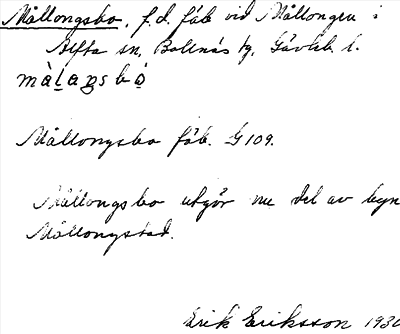 Mållongsbo, f.d. fäb vid Mållongen i
Alfta sn, Bollnäs tg, Gävleb. l.
Mållongsbo fäb. G 109.
Mållongsbo utgör nu del av byn
Mållongstad.
Erik Eriksson 1930